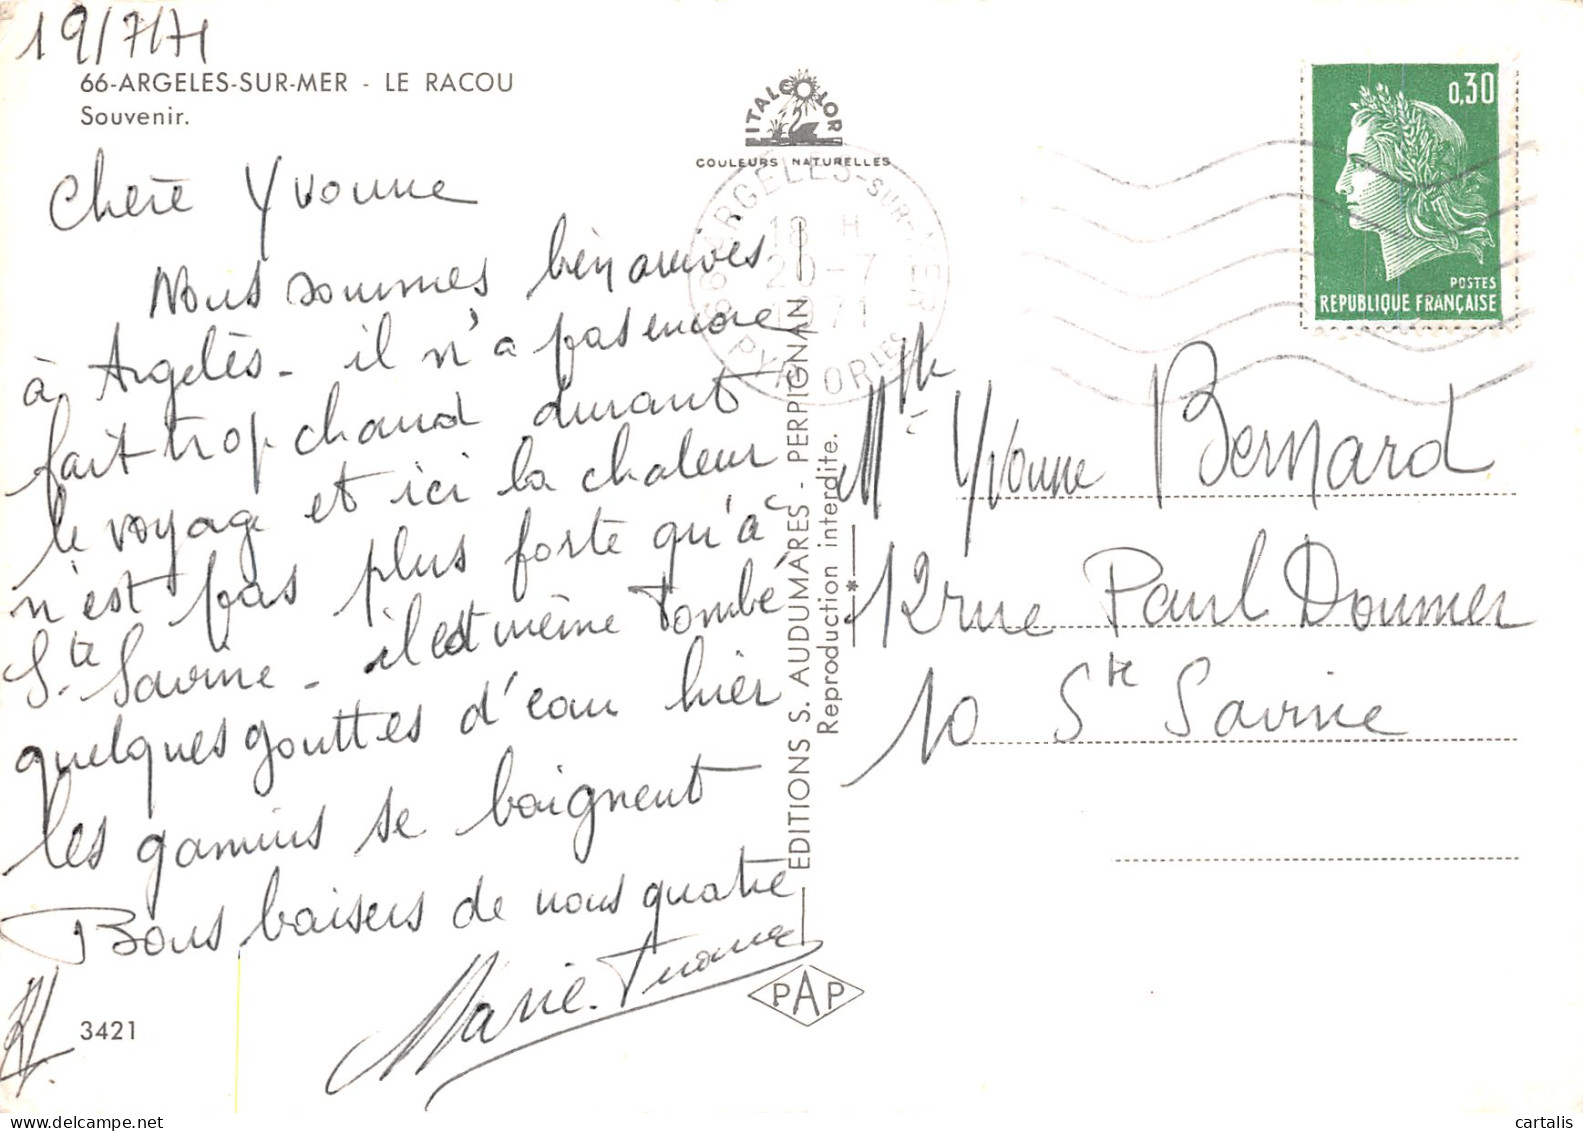 19/7/71
66-ARGELES-SUR-MER - LE RACOU
Souvenir.
Chère Yvonne
Nous sommes bien arrivés
à Argelès - il n'a pas encore
fait trop chaud durant
le voyage et ici la chaleur
n'est pas plus forte qu'à
Ste Savine - il est même tombé
quelques gouttes d'eau hier
les gamins se baignent
Bons baisers de nous quatre
Marie-
3421
ITALCOLOR
COULEURS NATURELLES
66 ARGELES-SUR-MER
18 H
20-7
1971
PYR. ORIES
EDITIONS S. AUDUMARES - PERPIGNAN
Reproduction interdite.
PAP
0,30
POSTES
REPUBLIQUE FRANÇAISE
Mlle Yvonne Bernard
12 rue Paul Doumer
10 Ste Savine
cartalis